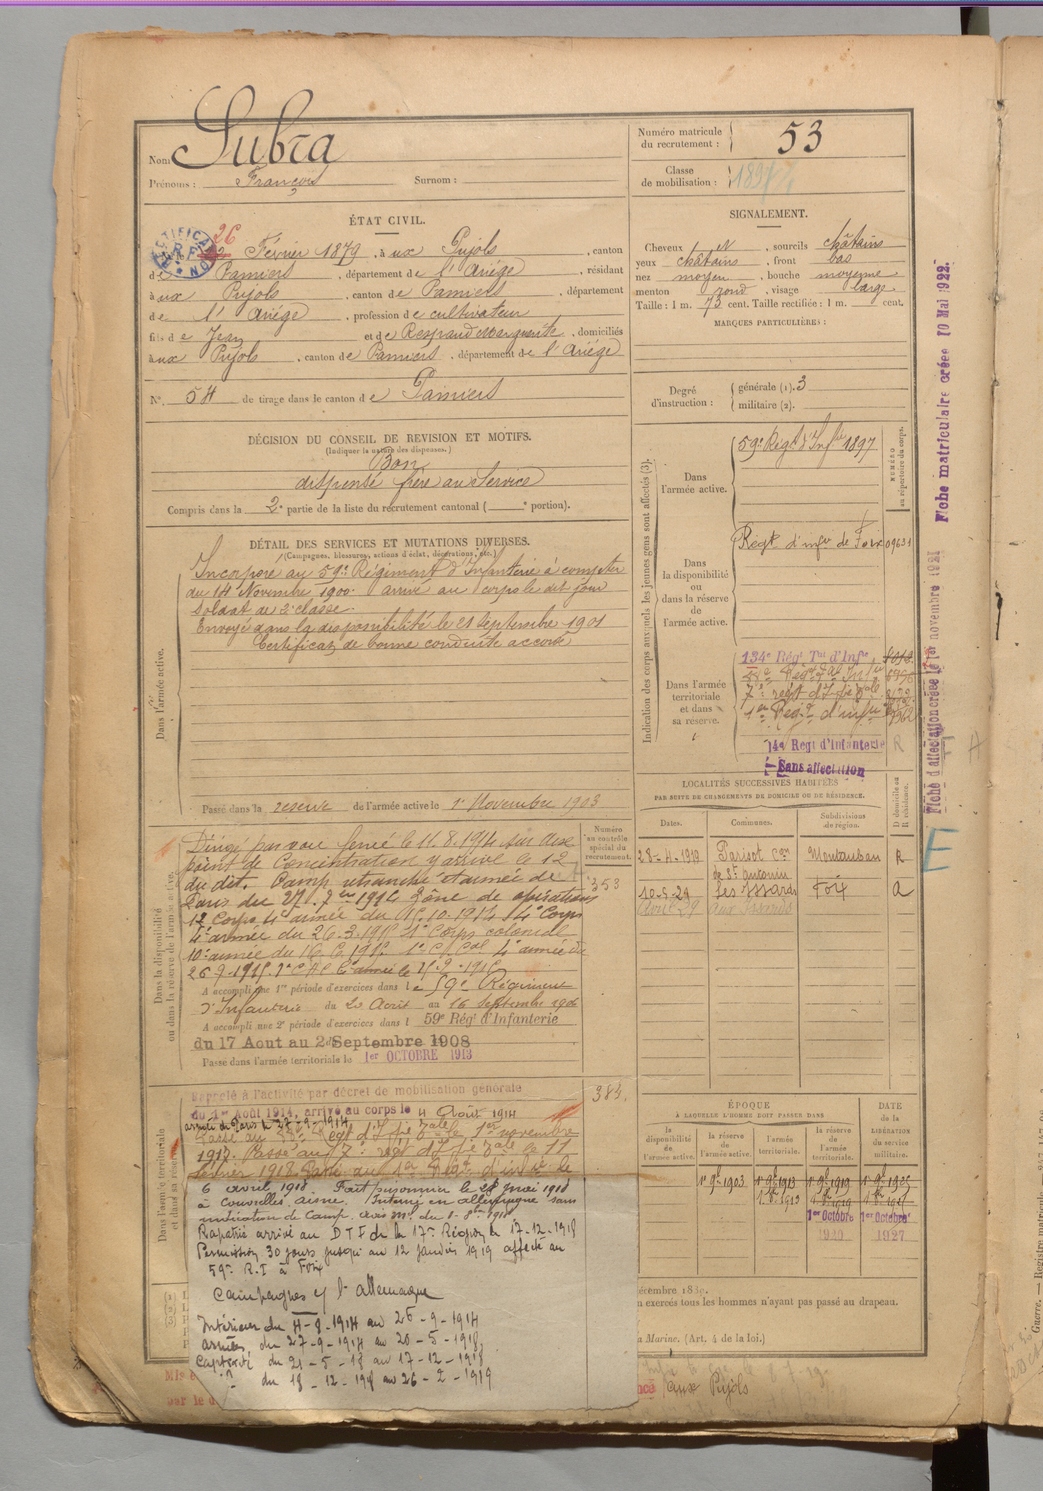 Nom Subra
Prénoms : François Surnom :
Numéro matricule du recrutement : 53
Classe de mobilisation : 1897
ÉTAT CIVIL.
RECTIFICATION
26 Février 1879, à aux Pujols, canton
de Pamiers, département de l'Ariége, résidant
à aux Pujols, canton de Pamiers, département
de l'Ariége, profession de cultivateur
fils de Jean et de Respaud Marguerite, domiciliés
à aux Pujols, canton de Pamiers, département de l'Ariége
N°. 54 de tirage dans le canton de Pamiers
SIGNALEMENT.
Cheveux N, sourcils châtains
yeux châtains, front bas
nez moyen, bouche moyenne
menton rond, visage large
Taille : 1 m. 73 cent. Taille rectifiée : 1 m. cent.
MARQUES PARTICULIÈRES :
Degré d'instruction : générale (1). 3
militaire (2).
DÉCISION DU CONSEIL DE REVISION ET MOTIFS.
(Indiquer la nature des dispenses.)
Bon
dispensé frère au service
Compris dans la 2e partie de la liste du recrutement cantonal ( e portion).
DÉTAIL DES SERVICES ET MUTATIONS DIVERSES.
(Campagnes, blessures, actions d'éclat, décorations, etc.)
Dans l'armée active.
Incorporé au 59e Régiment d'Infanterie à compter
du 14 Novembre 1900. arrivé au corps le dit jour
soldat de 2e classe.
Envoyé dans la disponibilité le 21 septembre 1901
Certificat de bonne conduite accordé
Passé dans la réserve de l'armée active le 1er Novembre 1903
Indication des corps auxquels les jeunes gens sont affectés (3).
NUMÉRO au répertoire du corps.
Dans l'armée active.
59e Régt d'Infie 1897
Dans la disponibilité ou dans la réserve de l'armée active.
Régt d'infie de Foix 09631
Dans l'armée territoriale et dans sa réserve.
134e Régt Tal d'Infie
7e régt d'Infie
1er Régt d'infie
14e Regt d'Infanterie R
Sans affectation
Fiche matriculaire créée 10 Mai 1922.
Fiche d'affectation créée le 1er novembre 1921
E
LOCALITÉS SUCCESSIVES HABITÉES
PAR SUITE DE CHANGEMENTS DE DOMICILE OU DE RÉSIDENCE.
Dates. Communes. Subdivisions de région. D domicile ou R résidence.
28-4-1919 Parisot con de St Antonin Montauban R
10-5-29 Les Issards Foix
Avril 29 aux Issards
Dans la disponibilité ou dans la réserve de l'armée active.
Numéro au contrôle spécial du recrutement.
353
Dirigé par voie ferrée le 11.8.1914 sur
point de Concentration y arrive le 12
du dit. Camp retranché et armée de
Paris du 27. 7bre 1914 Zône de opérations
12 Corps 4e armée du 15.10.1914 14e Corps
4e armée du 26.3.1915 1er Corps colonial
A accompli une 1re période d'exercices dans le 59e Régiment
d'Infanterie du 20 Août au 16 septembre 1906
A accompli une 2e période d'exercices dans le 59e Régt d'Infanterie
du 17 Aout au 2 Septembre 1908
Passé dans l'armée territoriale le 1er OCTOBRE 1913
Dans l'armée territoriale et dans sa réserve
383.
Rappelé à l'activité par décret de mobilisation générale
du 1er Août 1914, arrivé au corps le 4 Août 1914
armée de Paris le 27-9-1914
novembre
1917. Passé au 7e régt d'Infie le 11
février 1918. Passé au 1er Régt d'infie le
6 avril 1918. Fait prisonnier le 28 mai 1918
à Courelles. Aisne. Interné en allemagne sans
indication de Camp.
Rapatrié arrivé au D T I de la 17e Région le 17-12-1918
Permission 30 jours jusqu'au 12 janvier 1919 affecté au
59e R.I à Foix
Campagnes c/ l'allemagne
Intérieur du 4-8-1914 au 26-9-1914
armées du 27-9-1914 au 20-5-1918
Captivité du 21-5-18 au 17-12-1918
du 18-12-1918 au 26-2-1919
ÉPOQUE
À LAQUELLE L'HOMME DOIT PASSER DANS
DATE de la LIBÉRATION du service militaire.
la disponibilité de l'armée active. la réserve de l'armée active. l'armée territoriale. la réserve de l'armée territoriale.
1er 9bre 1903 1er 9bre 1913 1er 9bre 1919 1er 9bre 1925
1er Octobre 1er Octobre
1919 1927
n exercés tous les hommes n'ayant pas passé au drapeau.
a Marine. (Art. 4 de la loi.)
aux Pujols